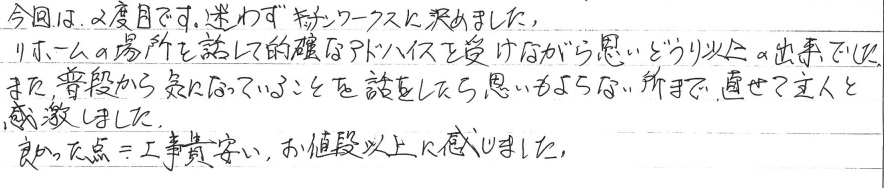 今回は、2度目です。迷わずキッチンワークスに決めました。
リホームの場所を話して的確なアドバイスを受けながら思いどうり以上の出来でした。
また、普段から気になっていることを話をしたら思いもよらない所まで、直せて主人と
感激しました。
良かった点=工事費安い、お値段以上に感じました。